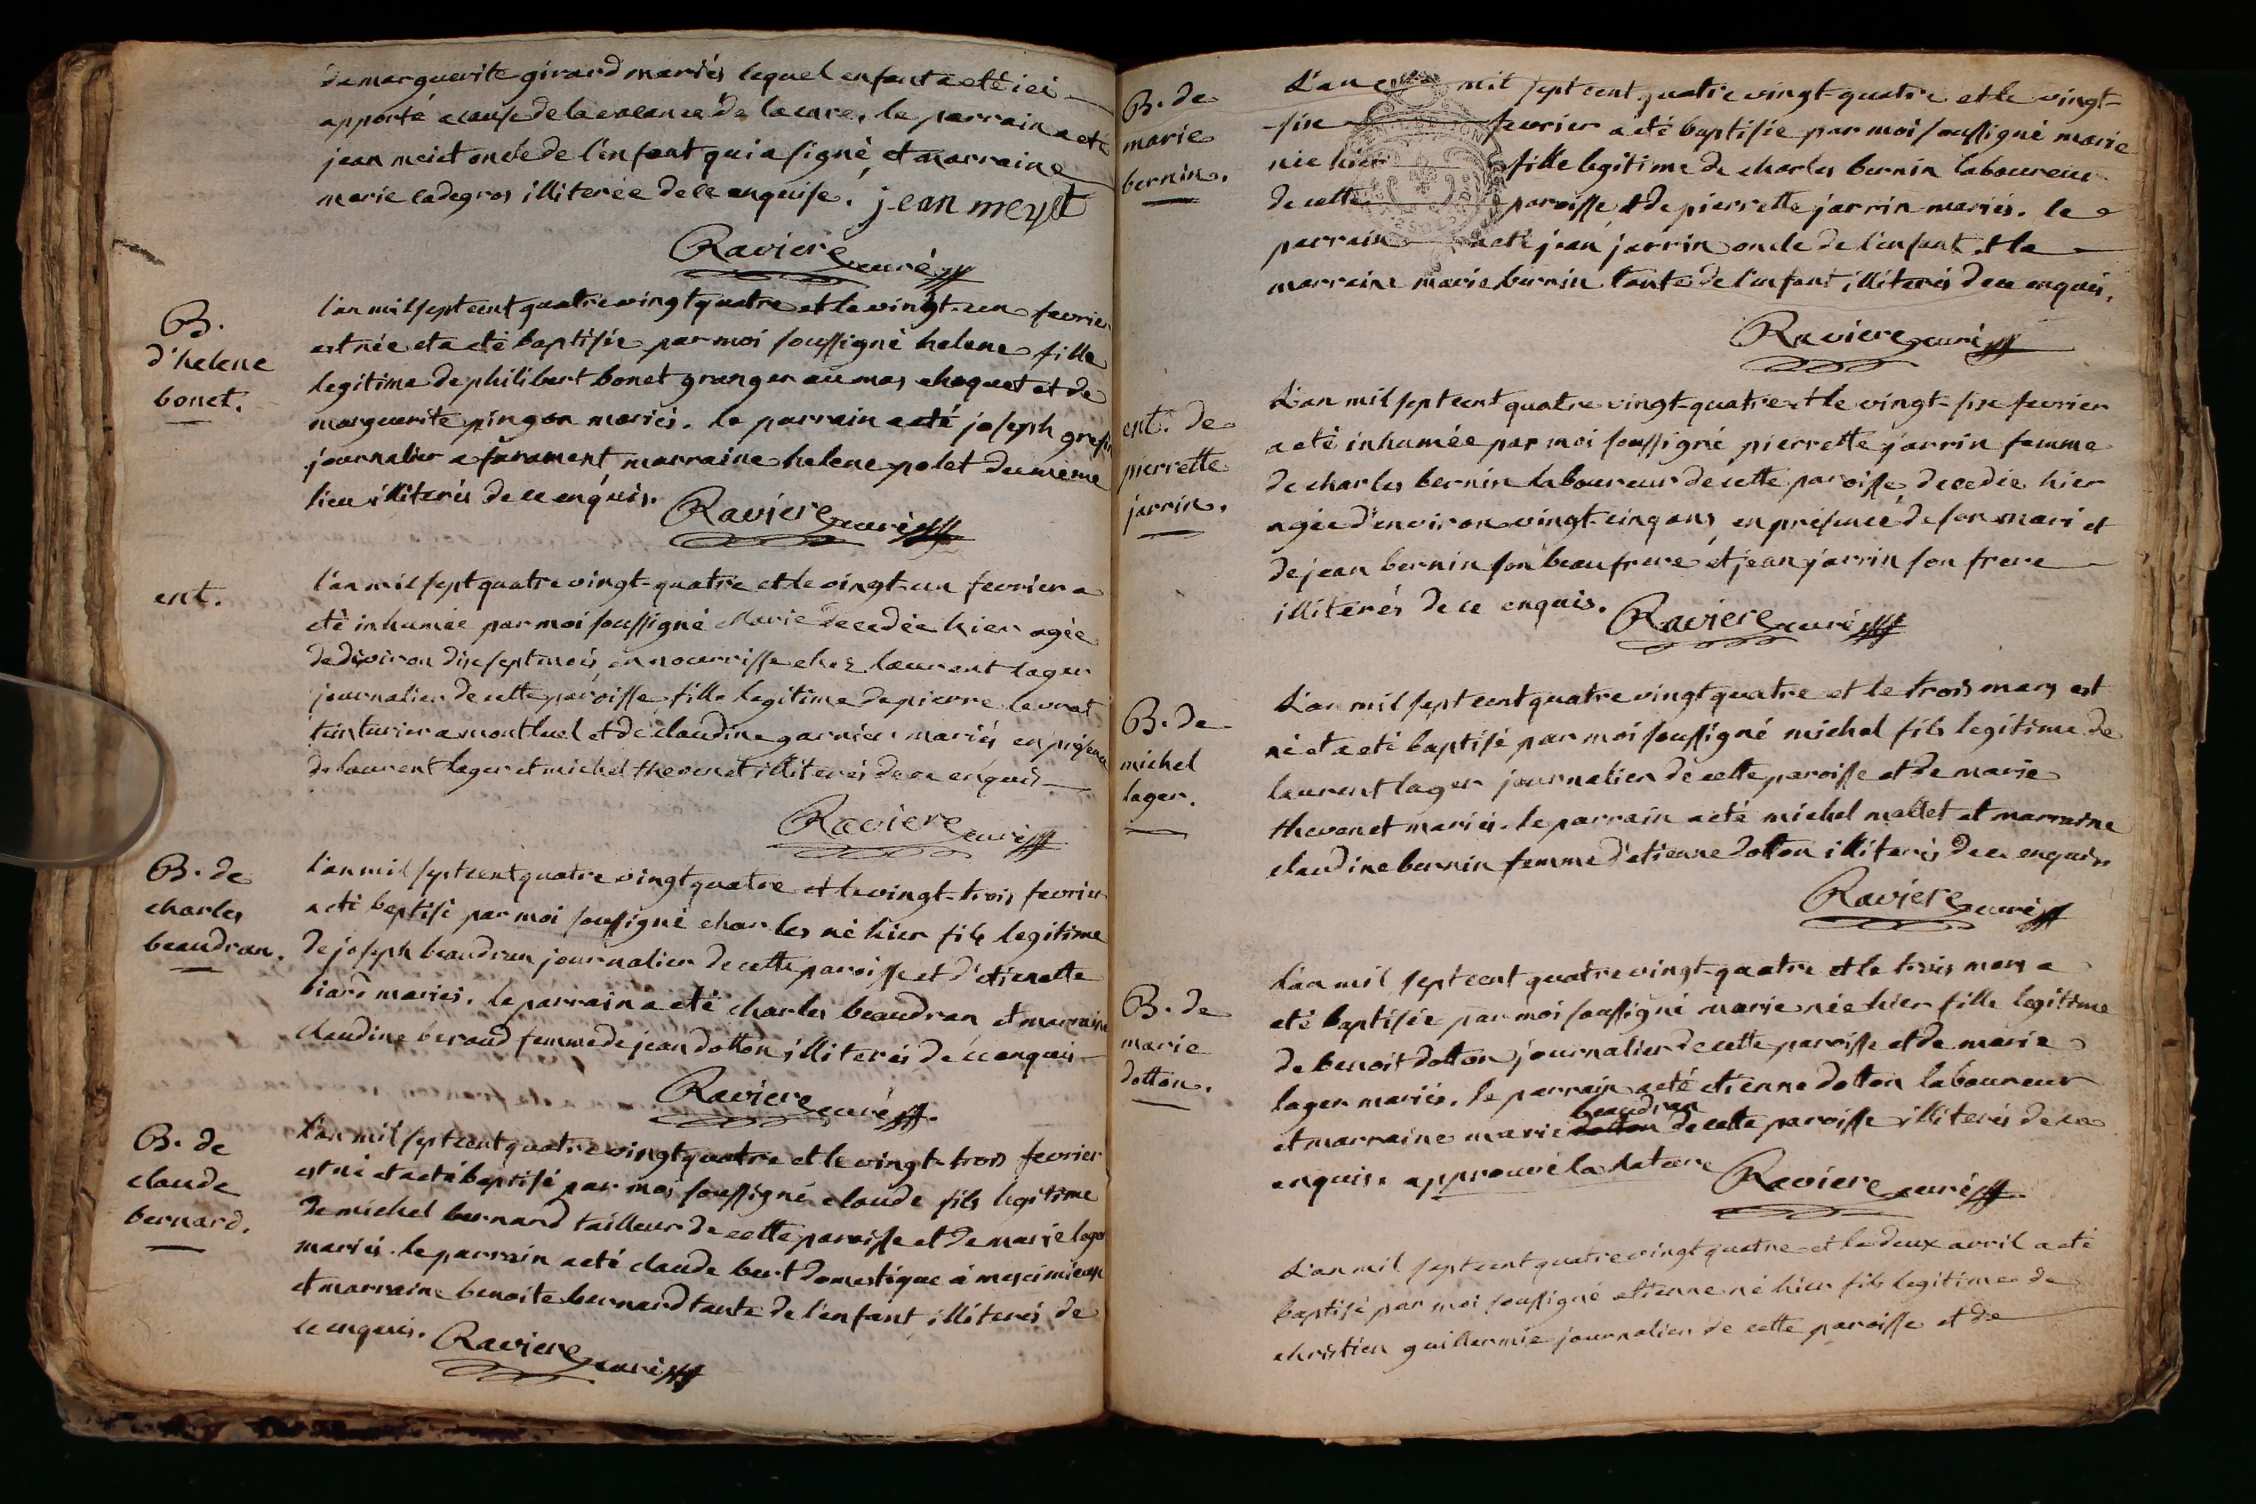 de marguerite girard mariés lequel enfant a eté ici
apporté a cause de la vacance de la cure, le parrain a eté
jean oncle de l'enfant qui a signé, et marraine
marie cadegros illiterée de ce enquise. jean meyet
Raviere curé
B.
d'helene
bonet.
l'an mil sept cent quatre vingt quatre et le vingt-un fevrier
est née et a eté baptisée par moi soussigné helene fille
legitime de philibert bonet granger au mas choquet et de
marguerite pingon mariés. le parrain a eté joseph
journalier a faramant marraine helene polet du même
lieu illiterés de ce enquis.
Raviere curé
ent.
l'an mil sept quatre vingt-quatre et le vingt-un fevrier a
eté inhumée par moi soussigné Marie decedée hier agée
de diviron dix sept mois en nourrisse chez laurent lager
journalier de cette paroisse fille legitime de pierre levrat
tinturier a montluel et de claudine garnier mariés en présence
de laurent lager et michel thevenet illiterés de ce enquis
Raviere curé
B. de
charles
beaudran.
l'an mil sept cent quatre vingt quatre et le vingt-trois fevrier
a eté baptisé par moi soussigné charles né hier fils legitime
de joseph beaudran journalier de cette paroisse et d'etienette
biard mariés. le parrain a eté charles beaudran et marraine
claudine beraud femme de jean dotton illiterés de ce enquis
Raviere curé
B. de
claude
bernard.
L'an mil sept cent quatre vingt quatre et le vingt-trois fevrier
est né et a eté baptisé par moi soussigné claude fils legitime
de michel bernard tailleur de cette paroisse et de marie lager
mariés. le parrain a eté claude bert domestique à meximieux
et marraine benoite bernard tante de l'enfant illiterés de
ce enquis. Raviere curé
B. de
marie
bernin.
L'an mil sept cent quatre vingt-quatre et le vingt-
six fevrier a eté baptisée par moi soussigné marie
née hier fille legitime de charles bernin laboureur
de cette paroisse et de pierrette jarrin mariés. le
parrain a eté jean jarrin oncle de l'enfant et la
marraine marie bernin tante de l'enfant illiterés de ce enquis.
Raviere curé
ent. de
pierrette
jarrin.
L'an mil sept cent quatre vingt-quatre et le vingt-six fevrier
a eté inhumée par moi soussigné pierrette jarrin femme
de charles bernin laboureur de cette paroisse decedée hier
agée d'environ vingt-cinq ans, en présence de son mari et
de jean bernin son beau frere et jean jarrin son frere
illiterés de ce enquis.
Raviere curé
B. de
michel
lager.
L'an mil sept cent quatre vingt quatre et le trois mars est
né et a eté baptisé par moi soussigné michel fils legitime de
laurent lager journalier de cette paroisse et de marie
thevenet mariés. le parrain a eté michel mallet et marraine
claudine bernin femme d'etienne dotton illiterés de ce enquis
Raviere curé
B. de
marie
dotton.
L'an mil sept cent quatre vingt-quatre et le trois mars a
eté baptisée par moi soussigné marie née hier fille legitime
de benoit dotton journalier de cette paroisse et de marie
lager mariés. le parrain a eté etienne dotton laboureur
et marraine marie dotton beaudran de cette paroisse illiterés de ce
enquis. approuvé la rature Raviere curé
L'an mil sept cent quatre vingt quatre et le deux avril a eté
baptisé par moi soussigné etienne né hier fils legitime de
christien guillermie journalier de cette paroisse et de